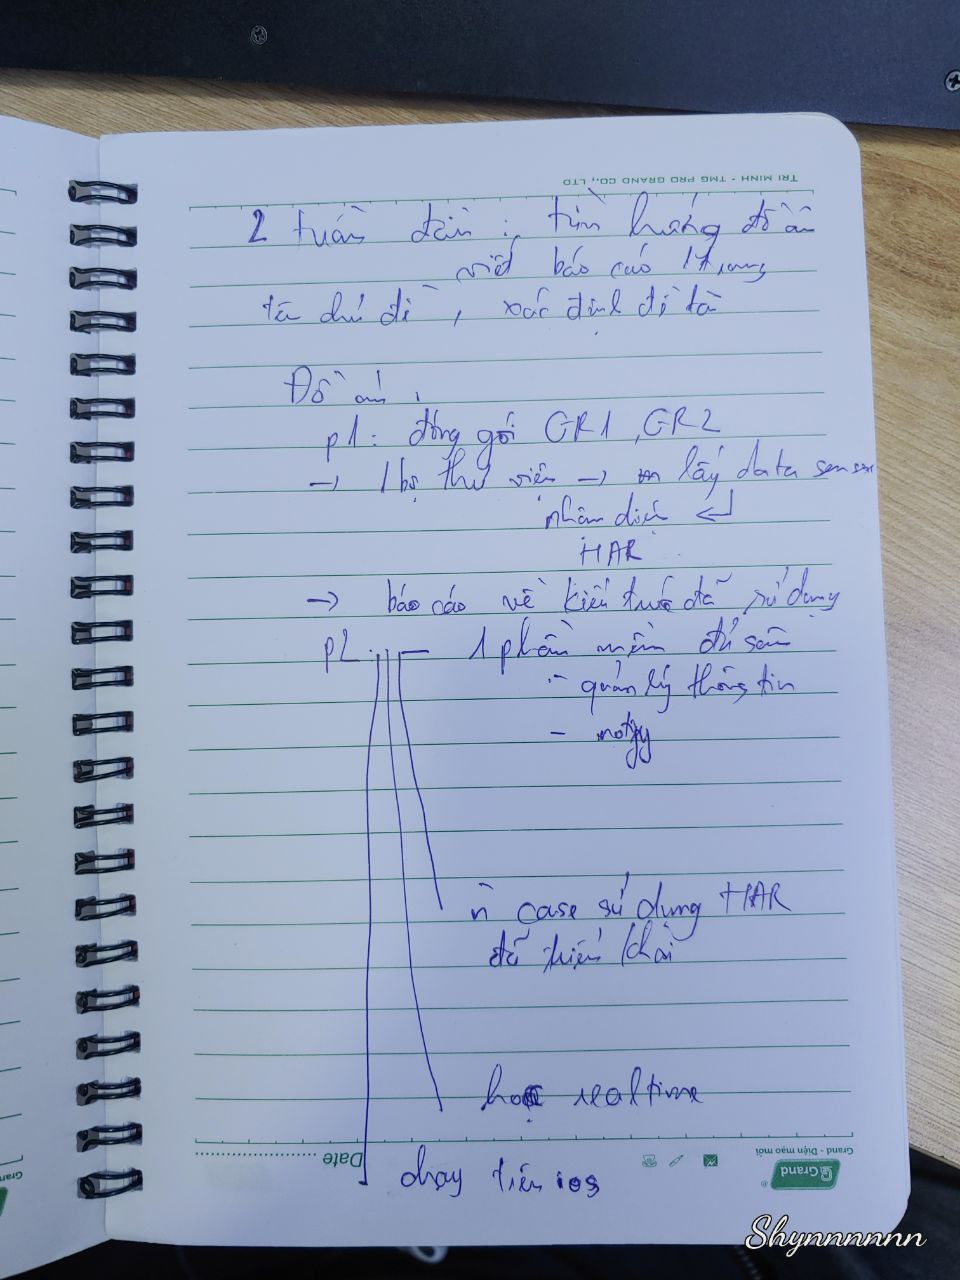 TRI MINH - TMG PRO GRAND CO., LTD
2 tuần đầu : tìm hướng đồ án
viết báo cáo 1 trang
tên chủ đề , xác định đề tài
Đồ án :
p1 : đóng gói GR1 , GR2
→ 1 bộ thư viện → lấy data sensor
nhận diện ↵
HAR
→ báo cáo về kiến trúc đã sử dụng
p2 : — 1 phần mềm đủ sâu
- quản lý thông tin
- notify
n case sử dụng HAR
để triển khai
học realtime
chạy trên ios
Date
Grand
Grand - Diện mạo mới
Shynnnnnn